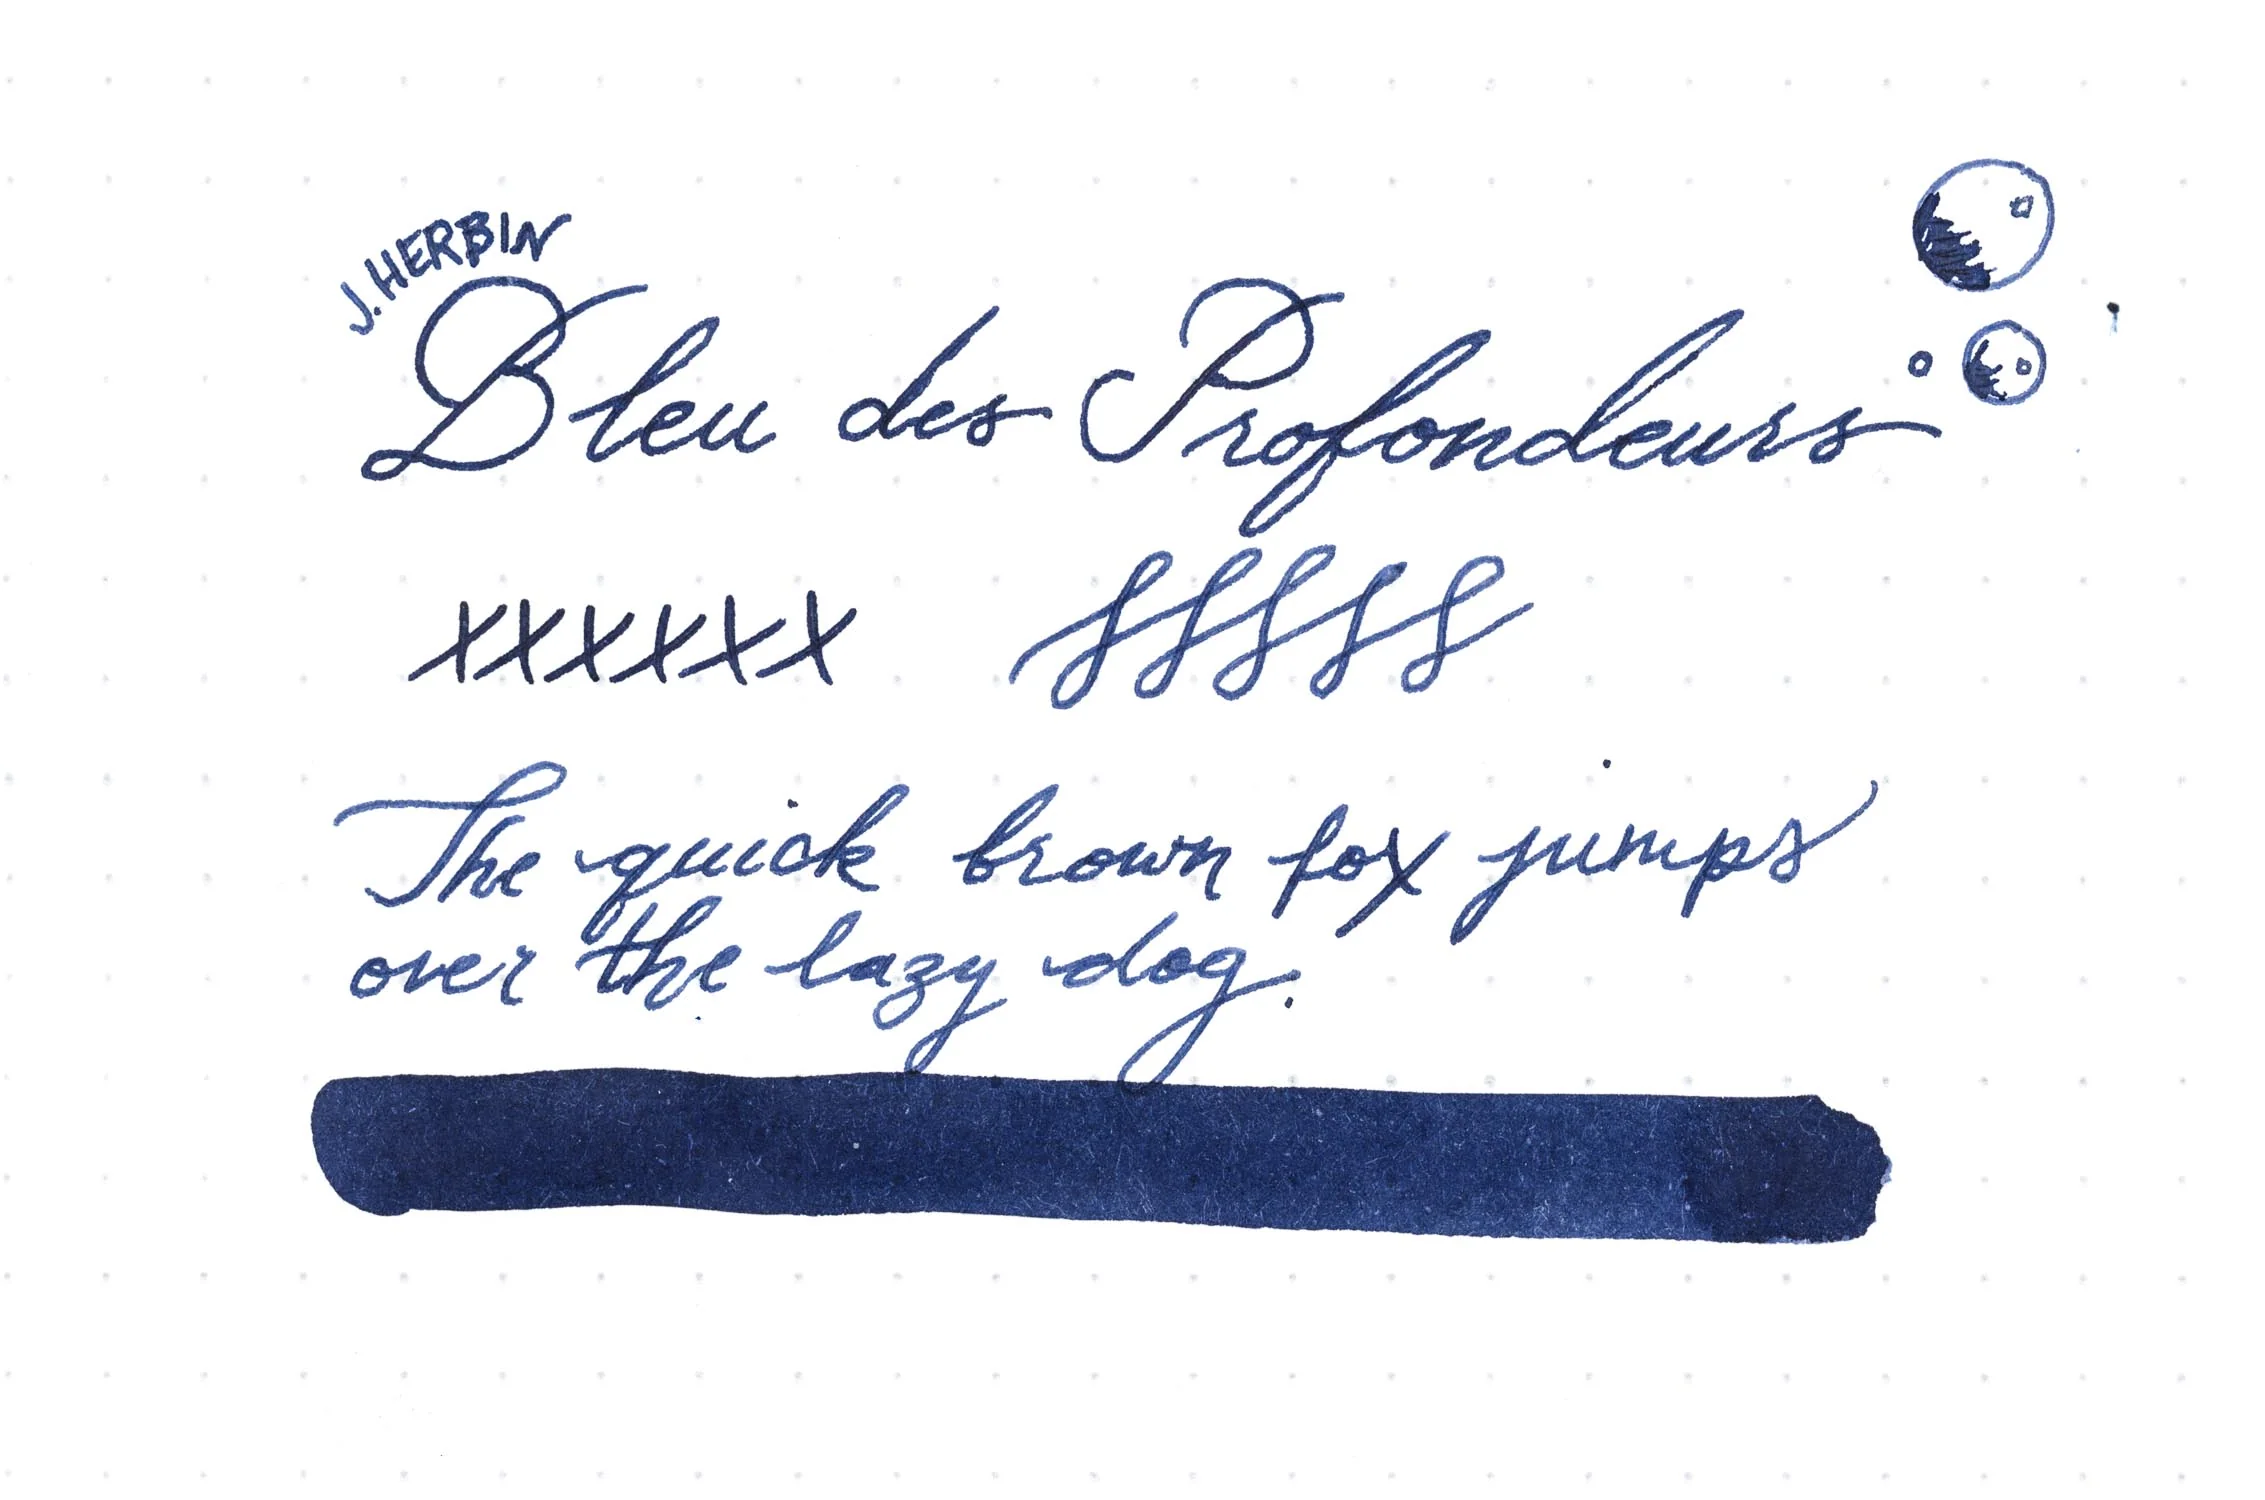 J. HERBIN
Bleu des Profondeurs
xxxxxx
The quick brown fox jumps
over the lazy dog.